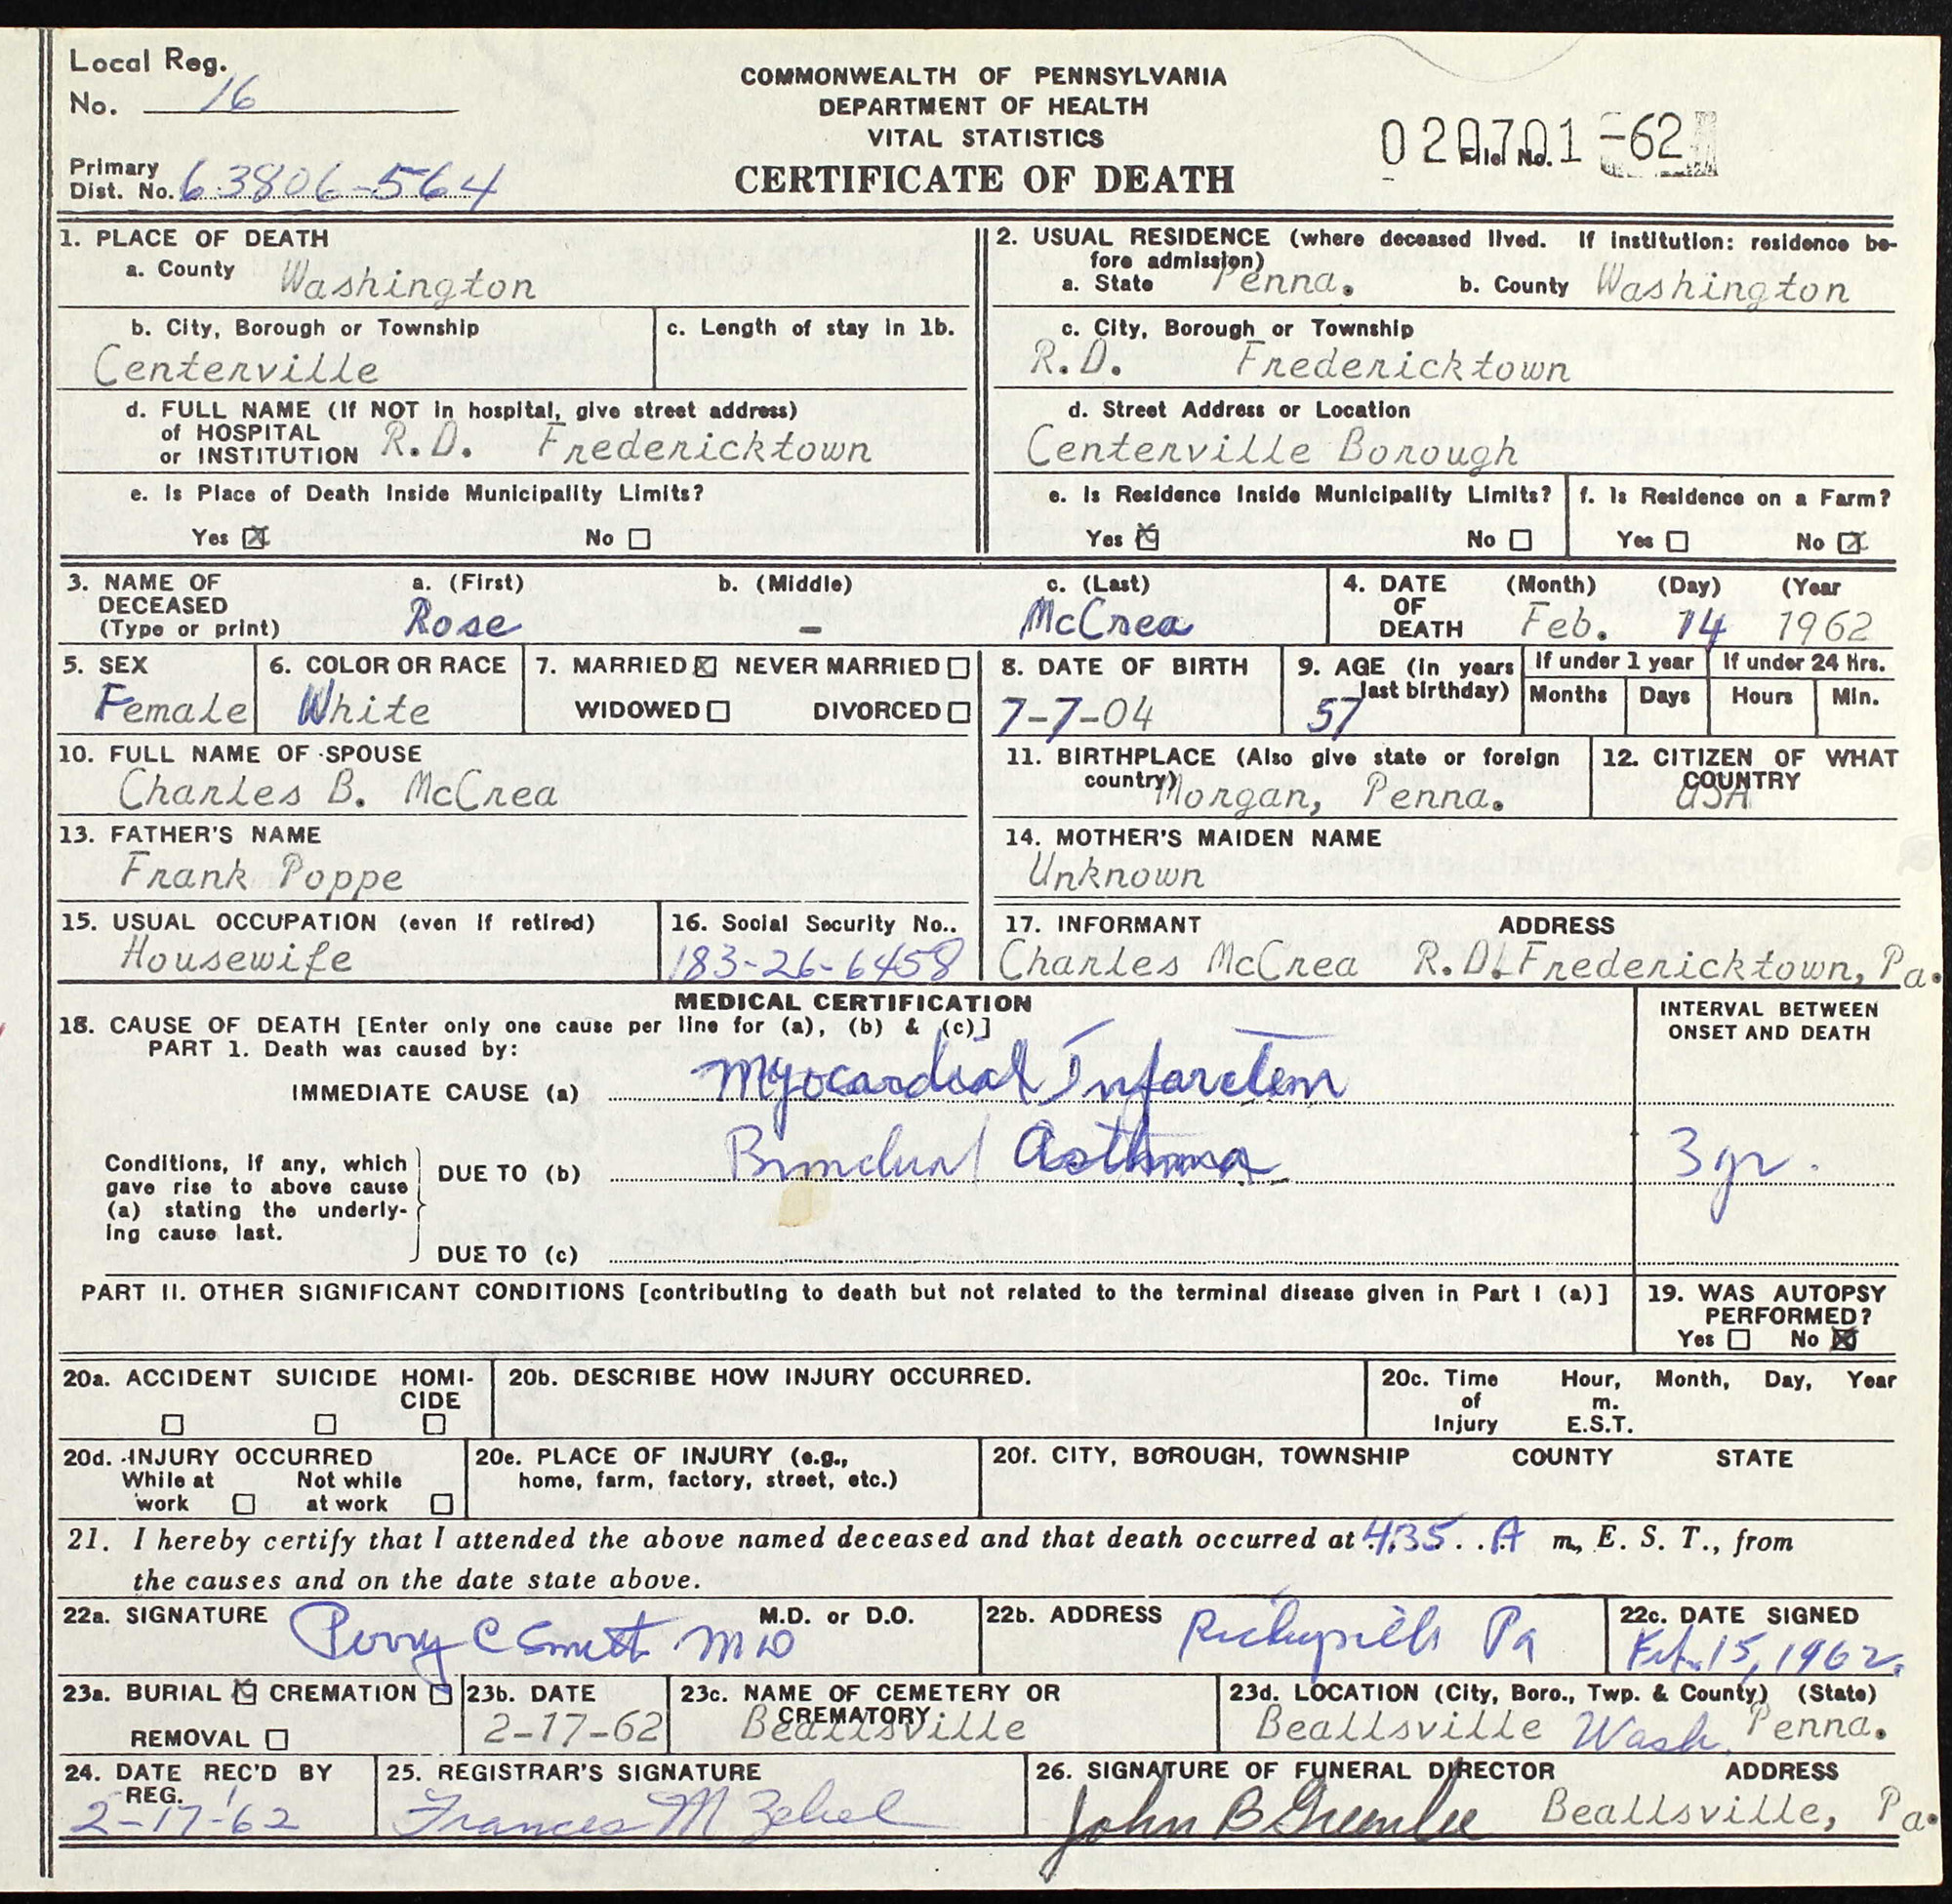 Local Reg.
No. 16
COMMONWEALTH OF PENNSYLVANIA
DEPARTMENT OF HEALTH
VITAL STATISTICS
CERTIFICATE OF DEATH
File No.
020701-62
Primary
Dist. No. 63806-564
1. PLACE OF DEATH
a. County Washington
2. USUAL RESIDENCE (where deceased lived. If institution: residence be-
fore admission)
a. State Penna. b. County Washington
b. City, Borough or Township
Centerville
c. Length of stay in 1b.
c. City, Borough or Township
R.D. Fredericktown
d. FULL NAME (If NOT in hospital, give street address)
of HOSPITAL
or INSTITUTION R.D. Fredericktown
d. Street Address or Location
Centerville Borough
e. Is Place of Death Inside Municipality Limits?
Yes ☒ No ☐
e. Is Residence Inside Municipality Limits?
Yes ☒ No ☐
f. Is Residence on a Farm?
Yes ☐ No ☒
3. NAME OF
DECEASED
(Type or print)
a. (First) b. (Middle) c. (Last)
Rose - McCrea
4. DATE
OF
DEATH
(Month) (Day) (Year
Feb. 14 1962
5. SEX
Female
6. COLOR OR RACE
White
7. MARRIED ☒ NEVER MARRIED ☐
WIDOWED ☐ DIVORCED ☐
8. DATE OF BIRTH
7-7-04
9. AGE (in years
last birthday)
57
If under 1 year
Months Days
If under 24 Hrs.
Hours Min.
10. FULL NAME OF SPOUSE
Charles B. McCrea
11. BIRTHPLACE (Also give state or foreign
country) Morgan, Penna.
12. CITIZEN OF WHAT
COUNTRY
USA
13. FATHER'S NAME
Frank Poppe
14. MOTHER'S MAIDEN NAME
Unknown
15. USUAL OCCUPATION (even if retired)
Housewife
16. Social Security No..
183-26-6458
17. INFORMANT ADDRESS
Charles McCrea R.D. Fredericktown, Pa.
MEDICAL CERTIFICATION
18. CAUSE OF DEATH [Enter only one cause per line for (a), (b) & (c)]
PART 1. Death was caused by:
INTERVAL BETWEEN
ONSET AND DEATH
IMMEDIATE CAUSE (a) Myocardial Infarction
Conditions, if any, which
gave rise to above cause
(a) stating the underly-
ing cause last.
DUE TO (b) Bronchial Asthma 3 yr.
DUE TO (c)
PART II. OTHER SIGNIFICANT CONDITIONS [contributing to death but not related to the terminal disease given in Part I (a)]
19. WAS AUTOPSY
PERFORMED?
Yes ☐ No ☒
20a. ACCIDENT SUICIDE HOMI-
CIDE
☐ ☐ ☐
20b. DESCRIBE HOW INJURY OCCURRED.
20c. Time
of
Injury
Hour, Month, Day, Year
m.
E.S.T.
20d. INJURY OCCURRED
While at Not while
work ☐ at work ☐
20e. PLACE OF INJURY (e.g.,
home, farm, factory, street, etc.)
20f. CITY, BOROUGH, TOWNSHIP COUNTY STATE
21. I hereby certify that I attended the above named deceased and that death occurred at 4:35 A m., E. S. T., from
the causes and on the date state above.
22a. SIGNATURE M.D. or D.O.
Perry C Smith MD
22b. ADDRESS
Richeyville Pa
22c. DATE SIGNED
Feb. 15, 1962.
23a. BURIAL ☒ CREMATION ☐
REMOVAL ☐
23b. DATE
2-17-62
23c. NAME OF CEMETERY OR
CREMATORY
Beallsville
23d. LOCATION (City, Boro., Twp. & County) (State)
Beallsville Wash. Penna.
24. DATE REC'D BY
REG.
2-17-62
25. REGISTRAR'S SIGNATURE
Frances M Zebel
26. SIGNATURE OF FUNERAL DIRECTOR ADDRESS
John B Greenlee Beallsville, Pa.